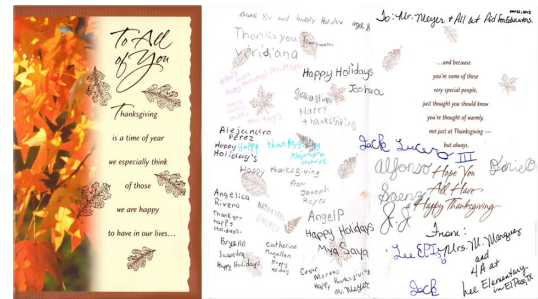 To All
of You
Thanksgiving
is a time of year
we especially think
of those
we are happy
to have in our lives...
Thank You and happy Holidays
Thanks you
Viridiana
Happy Holidays
Joshua
Sebastian
Happy
thanksgiving
Alejandro
Perez
Happy
Holiday's
Happy thanksgiving
Alejandra
Happy thanksgiving
from
Joseph
Reyes
Angelica
Rivera
Thank you
happy
Holidays.
Angel P
Happy Holidays
Mya Saya
Bryann
Happy Holidays
Catherine
Magallan
Happy
Holiday
Cesar
Moreno
Happy thanksgiving
Mr. Meyer
To: Mr. Meyer & All at Aid for Educators.
...and because
you're some of these
very special people,
just thought you should know
you're thought of warmly,
not just at Thanksgiving —
but always.
Jack Lucero III
Alfonso
Saenz
Hope You
All Have
A Happy Thanksgiving
From:
Mrs. M. Marquez
and
4A at
Lee Elementary
in El Paso, TX
Lee EPISD
Jack